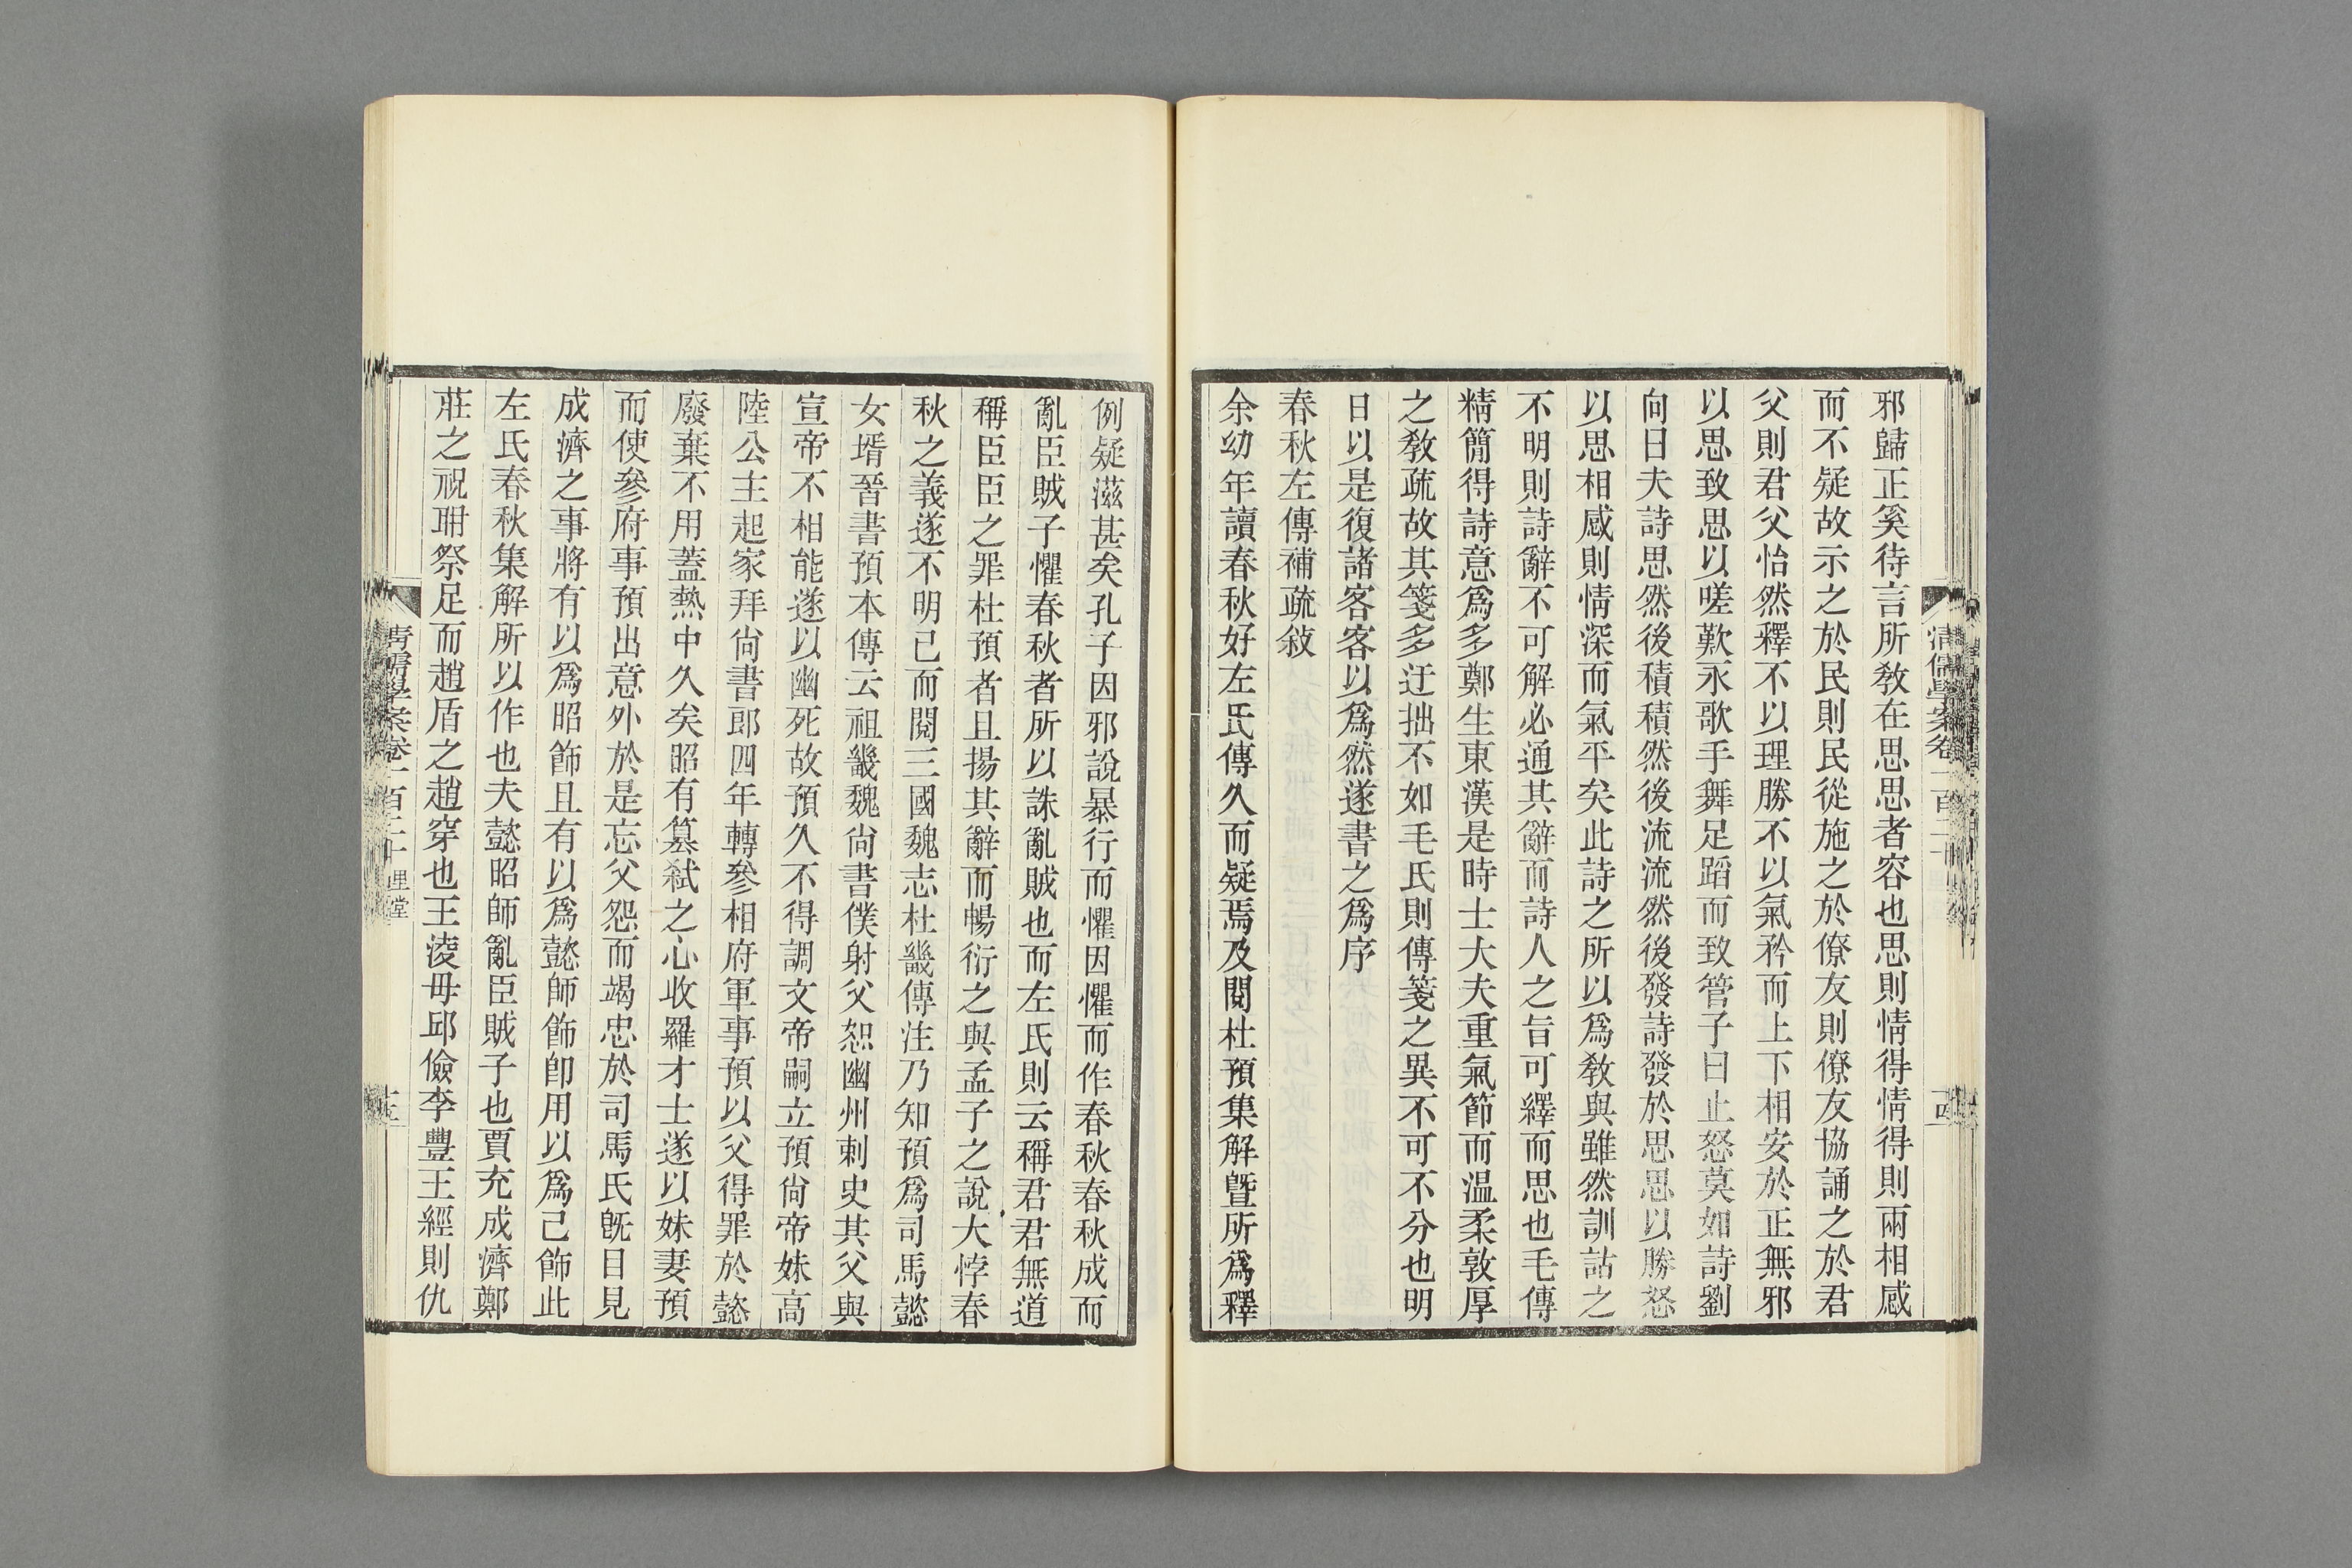 邪歸正奚待言所敎在思思者容也思則情得情得則兩相感
而不疑故示之於民則民從施之於僚友則僚友協誦之於君
父則君父怡然釋不以理勝不以氣矜而上下相安於正無邪
以思致思以嗟歎永歌手舞足蹈而致管子曰止怒莫如詩劉
向曰夫詩思然後積積然後流流然後發詩發於思思以勝怒
以思相感則情深而氣平矣此詩之所以爲敎與雖然訓詁之
不明則詩辭不可解必通其辭而詩人之旨可繹而思也毛傳
精簡得詩意爲多鄭生東漢是時士大夫重氣節而温柔敦厚
之敎疏故其箋多迂拙不如毛氏則傳箋之異不可不分也明
日以是復諸客客以爲然遂書之爲序
春秋左傳補疏敍
余幼年讀春秋好左氏傳久而疑焉及閱杜預集解曁所爲釋
清儒學案卷一百二十
例疑滋甚矣孔子因邪說暴行而懼因懼而作春秋春秋成而
亂臣賊子懼春秋者所以誅亂賊也而左氏則云稱君君無道
稱臣臣之罪杜預者且揚其辭而暢衍之與孟子之說大悖春
秋之義遂不明已而閱三國魏志杜畿傳注乃知預爲司馬懿
女壻晉書預本傳云祖畿魏尙書僕射父恕幽州刺史其父與
宣帝不相能遂以幽死故預久不得調文帝嗣立預尙帝妹高
陸公主起家拜尙書郎四年轉參相府軍事預以父得罪於懿
廢棄不用蓋熱中久矣昭有篡弒之心收羅才士遂以妹妻預
而使參府事預出意外於是忘父怨而竭忠於司馬氏旣目見
成濟之事將有以爲昭飾且有以爲懿師飾卽用以爲己飾此
左氏春秋集解所以作也夫懿昭師亂臣賊子也賈充成濟鄭
莊之祝聃祭足而趙盾之趙穿也王淩毋邱儉李豐王經則仇
清儒學案卷一百二十 里堂